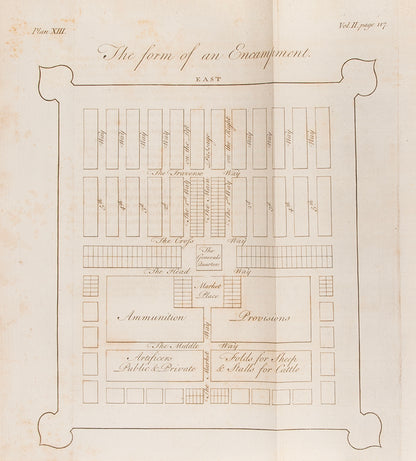 Plan XIII.
Vol. II. page 117
The form of an Encampment.
EAST
Way
Way
Way
Way
on the left
Passage
on the Right
Way
Way
Way
Way
The Traverse Way
5th
4th
3d
2d
The 1st Way
The Main
The 1st Way
2d
3d
4th
5th
The Cross Way
The
Generals
Quarter
The Head Way
Market
Place
Ammunition
Provisions
The Middle Way
Artificers
Public & Private
Folds for Sheep
& Stalls for Cattle
The Market Way